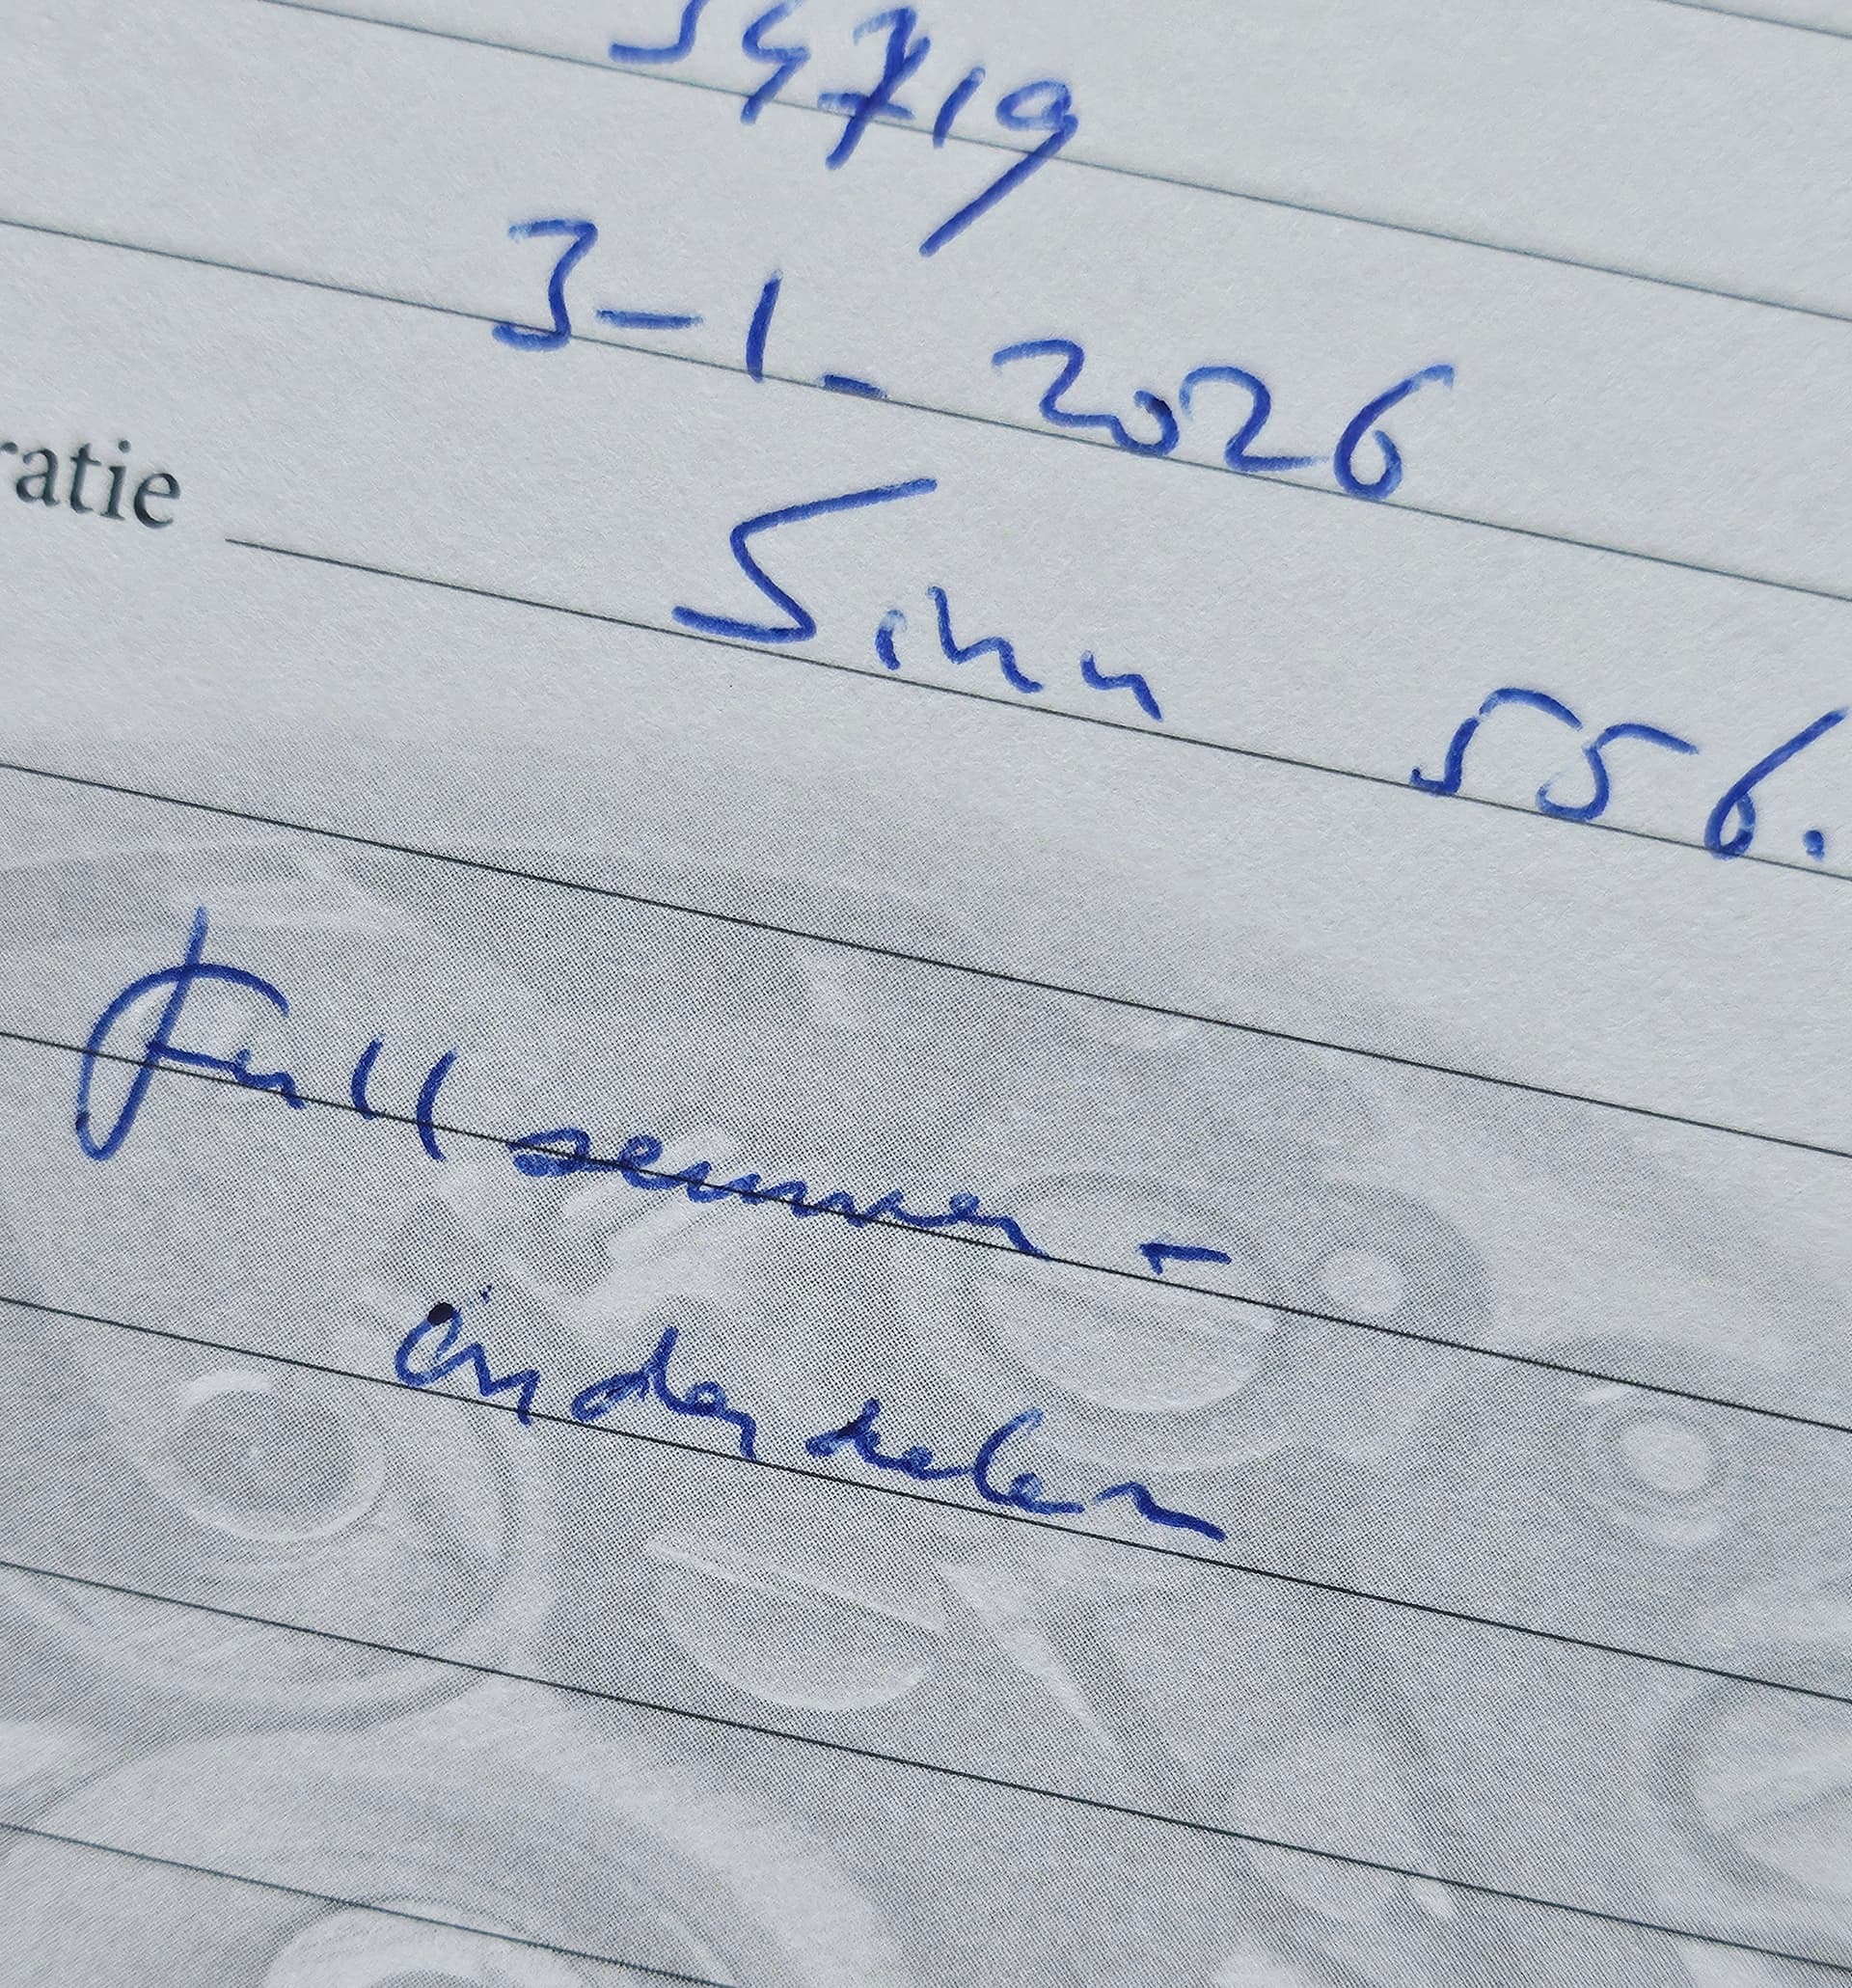 54719
3-1-2026
ratie
556.
Full service -
onderdelen